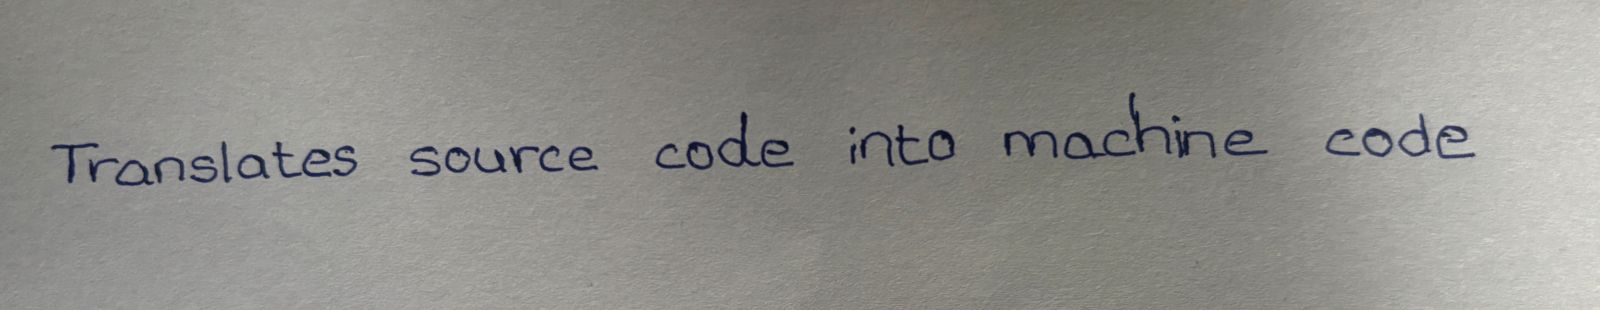 Translates source code into machine code